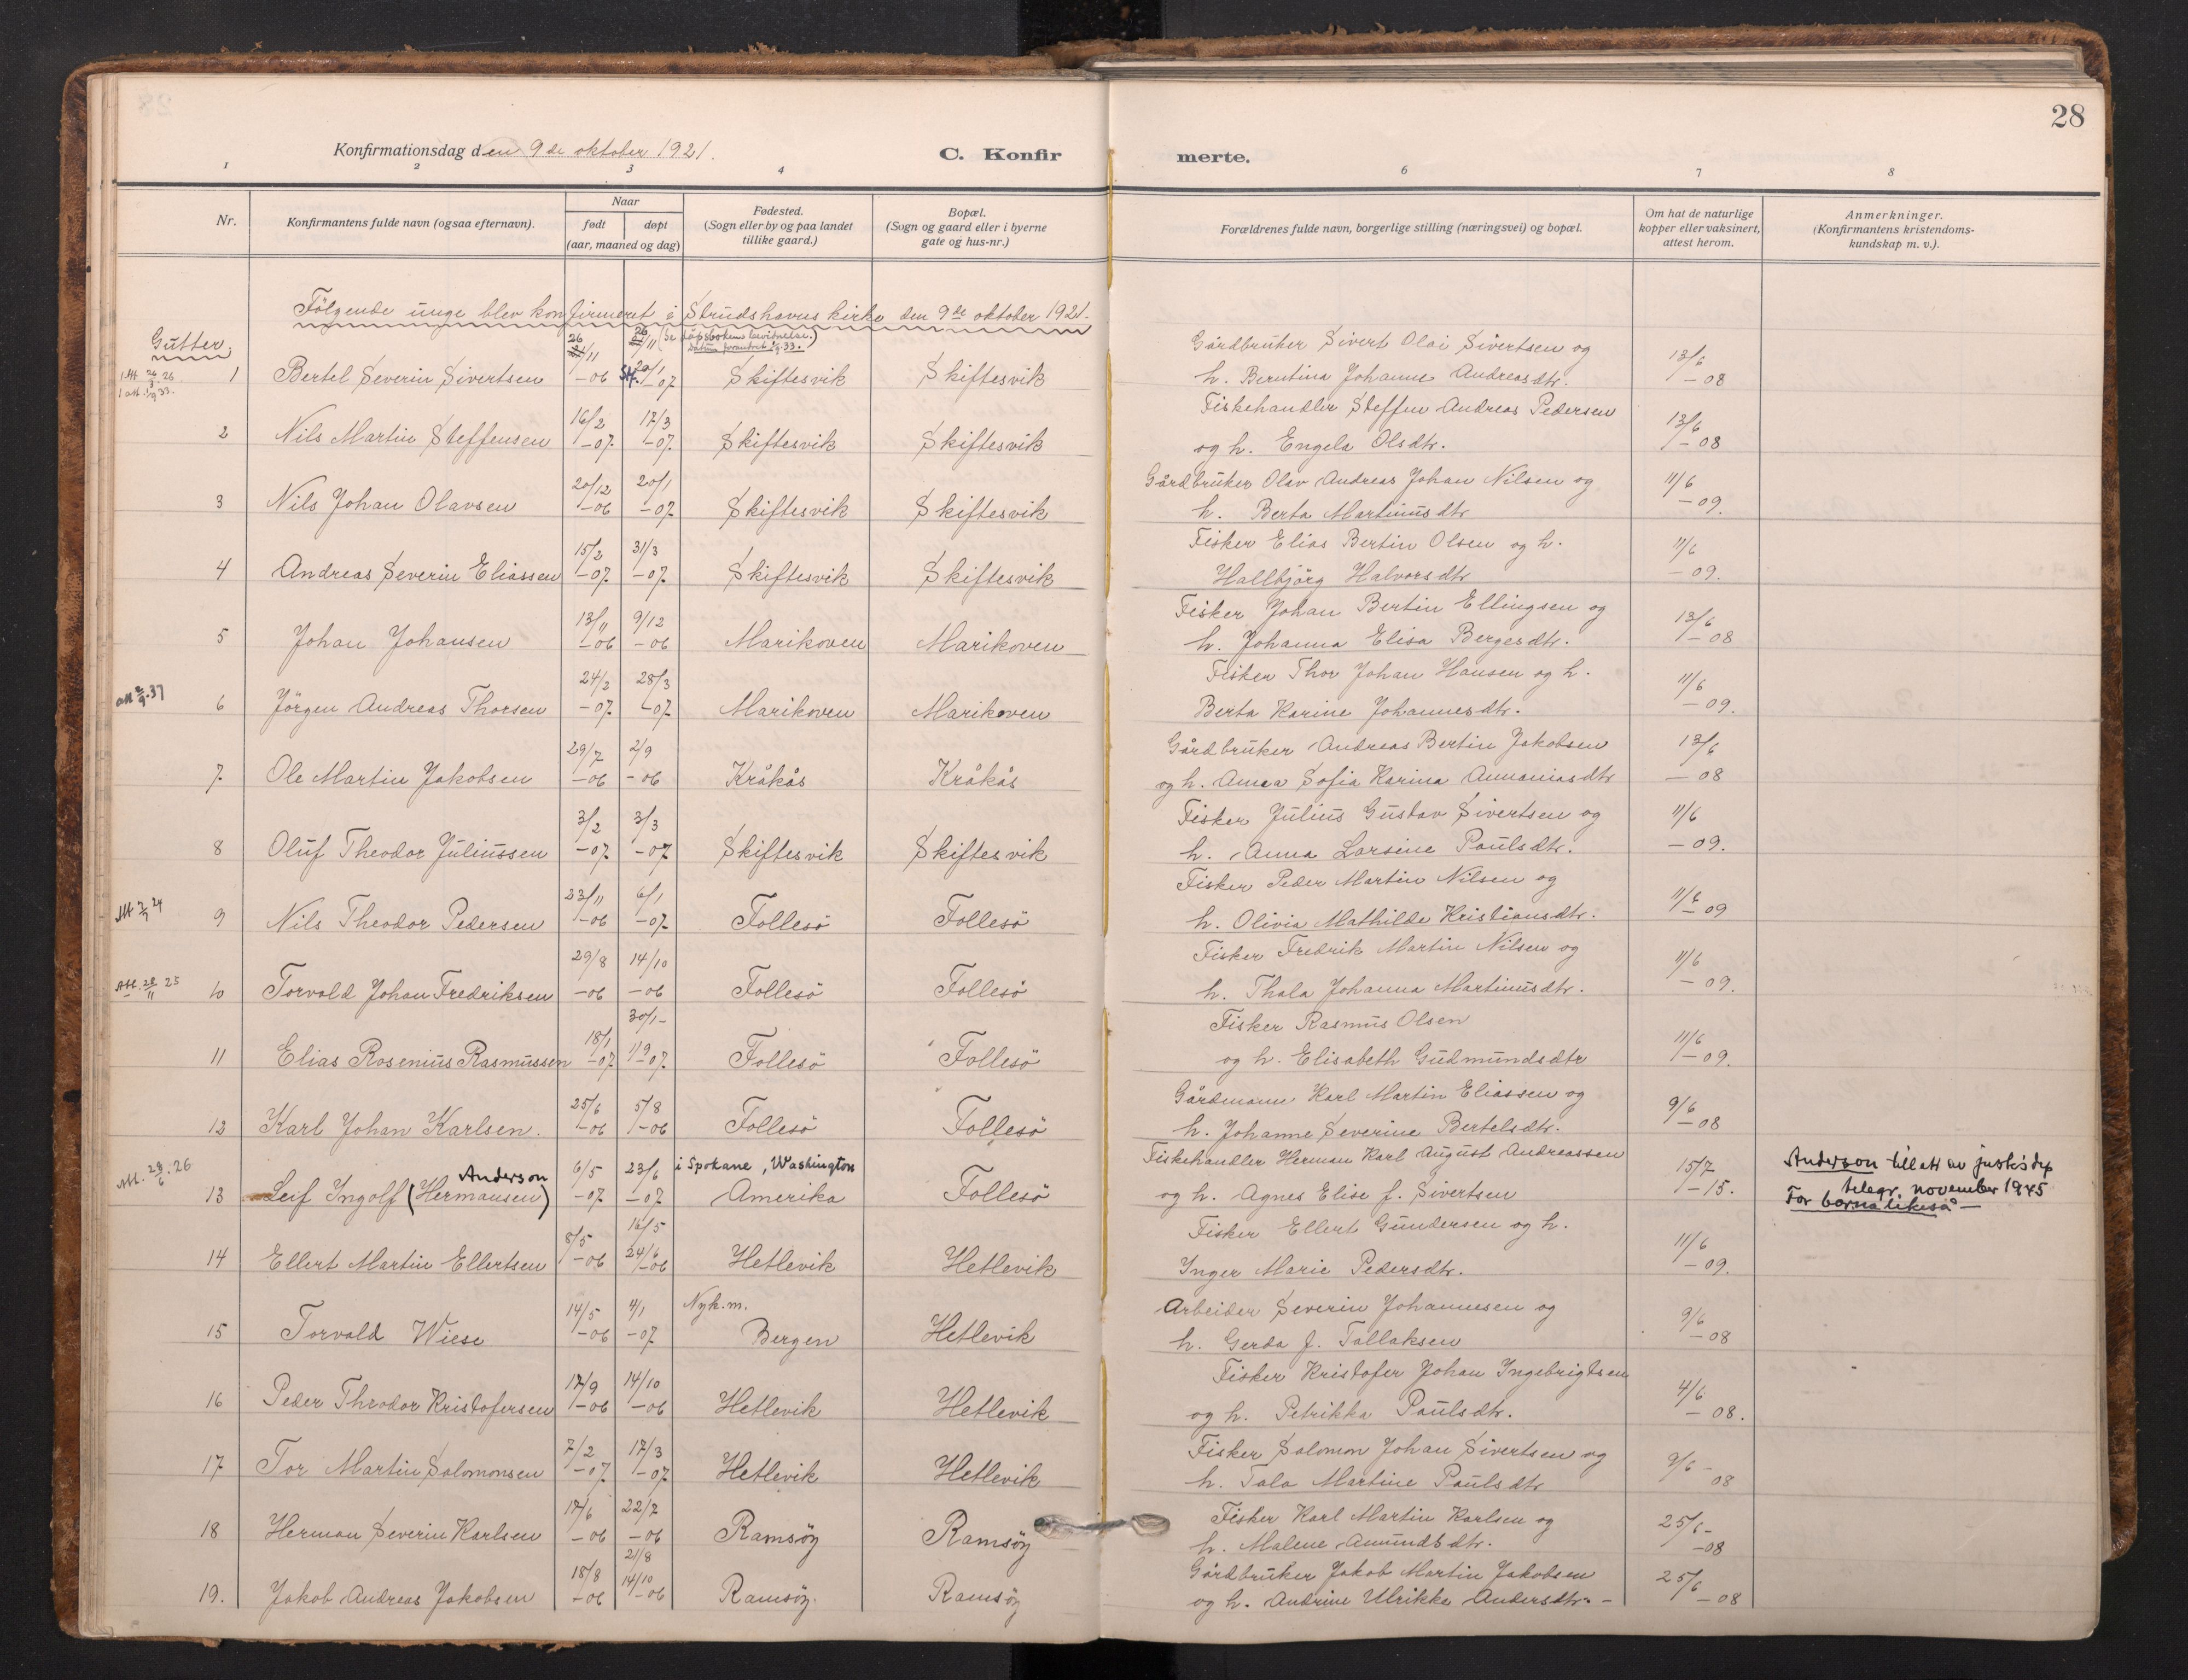 28
Konfirmationsdag den 9de oktober 1921.
C. Konfirmerte.
1 2 3 4 6 7 8
Nr. Konfirmantens fulde navn (ogsaa efternavn). Naar født døpt (aar, maaned og dag) Fødested. (Sogn eller by og paa landet tillike gaard.) Bopæl. (Sogn og gaard eller i byerne gate og hus-nr.) Forældrenes fulde navn, borgerlige stilling (næringsvei) og bopæl. Om hat de naturlige kopper eller vaksinert, attest herom. Anmerkninger. (Konfirmantens kristendomskundskap m. v.).
Følgende unge blev konfirmeret i Strudshavns kirke den 9de oktober 1921.
Gutter.
1 Bertel Severin Sivertsen 26/11 -06 20/1 -07 Skiftesvik Skiftesvik Gårdbruker Sivert Olai Sivertsen og h. Berntina Johanne Andreasdtr. 13/6 -08
2 Nils Martin Steffensen 16/2 -07. 17/3 -07. Skiftesvik Skiftesvik Fiskehandler Steffen Andreas Pedersen og h. Engela Olsdtr. 13/6 -08
3 Nils Johan Olavsen 20/12 -06 20/1 -07. Skiftesvik Skiftesvik Gårdbruker Olav Andreas Johan Nilsen og h. Berta Martinusdtr 11/6 -09.
4 Andreas Severin Eliassen 15/2 -07. 31/3 -07. Skiftesvik Skiftesvik Fisker Elias Bertin Olsen og h. Hallbjörg Halvorsdtr 11/6 -09.
5 Johan Johansen 13/11 -06 9/12 -06 Marikoven Marikoven Fisker Johan Bertin Ellingsen og h. Johanna Elisa Bergesdtr. 13/6 -08
att 2/9.37 6 Jörgen Andreas Thorsen 24/2 -07. 28/3 -07. Marikoven Marikoven Fisker Thor Johan Hansen og h. Berta Karine Johannesdtr. 11/6 -09.
7. Ole Martin Jakobsen 29/7 -06 2/9 -06 Kråkås Kråkås Gårdbruker Andreas Bertin Jakobsen og h. Anna Sofia Karina Annaniasdtr 13/6 -08
8 Oluf Theodor Juliussen 3/2 -07. 3/3 -07 Skiftesvik Skiftesvik Fisker Julius Gustav Sivertsen og h. Anna Larsine Paulsdtr. 11/6 -09.
9 Nils Theodor Pedersen 23/11 -06 6/1 -07. Follesö Follesö Fisker Peder Martin Nilsen og h. Olivia Mathilde Kristiansdtr. 11/6 -09
Att. 28/11 25 10 Torvald Johan Fredriksen 29/8 -06 14/10 -06 Follesö Follesö Fisker Fredrik Martin Nilsen og h. Thala Johanna Martinusdtr. 11/6 -09.
11 Elias Rosenius Rasmussen 18/1 -07. 30/1- -07. Follesö Follesö Fisker Rasmus Olsen og h. Elisabeth Gudmundsdtr 11/6 -09.
12 Karl Johan Karlsen. 25/6 -06 5/8 -06 Follesö Follesö Gårdmann Karl Martin Eliassen og h. Johanne Severine Bertelsdtr. 9/6 -08
Att. 23/6.26 13 Leif Ingolf (Hermansen) Anderson 6/5 -07 23/6 -07 i Spokane, Washington Amerika Follesö Fiskehandler Herman Karl August Andreassen og h. Agnes Elise f. Sivertsen 15/7 -15. Anderson tillatt av justisdep telegr. november 1945 For borna likeså -
14 Ellert Martin Ellertsen 8/5 -06 16/5 24/6 -06 Hetlevik Hetlevik Fisker Ellert Gundersen og h. Inger Marie Pedersdtr. 11/6 -09.
15 Torvald Wiese 14/5 -06 4/1 -07 Nyk.m. Bergen Hetlevik Arbeider Severin Johannesen og h. Gerda f. Tallaksen 9/6 -08
16 Peder Theodor Kristofersen 17/9 -06 14/10 -06 Hetlevik Hetlevik Fisker Kristofer Johan Ingebrigtsen og h. Petrikka Paulsdtr. 4/6 -08.
17 Tor Martin Salomonsen 7/2 -07. 17/3 -07 Hetlevik Hetlevik Fisker Salomon Johan Sivertsen og h. Tala Martine Paulsdtr 9/6- 08
18 Herman Severin Karlsen 17/6 -06 22/7 -06 Ramsöy Ramsöy Fisker Karl Martin Karlsen og h. Malene Amundsdtr. 25/6- -08
19. Jakob Andreas Jakobsen 18/8 -06 21/8 14/10 -06 Ramsöy. Ramsöy Gårdbruker Jakob Martin Jakobsen og h. Andrine Ulrikke Andersdtr.- 25/6 -08